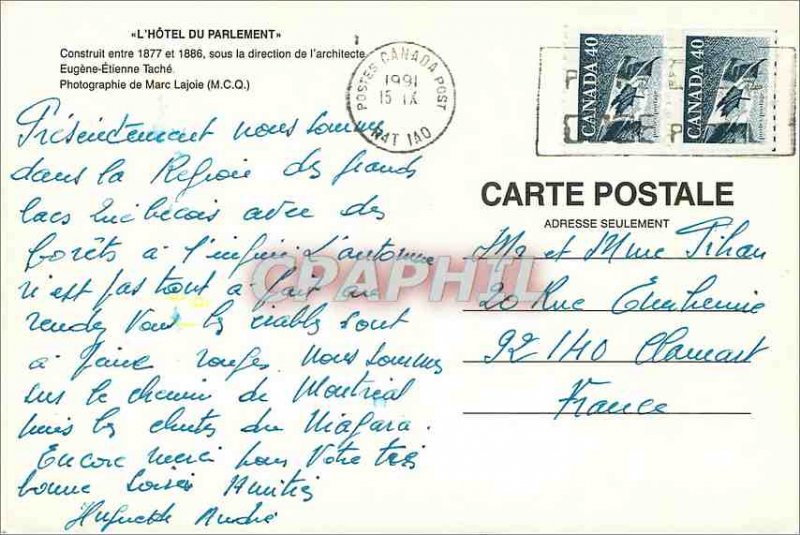 «L'HÔTEL DU PARLEMENT»
Construit entre 1877 et 1886, sous la direction de l'architecte
Eugène-Étienne Taché
Photographie de Marc Lajoie (M.C.Q.)
POSTES CANADA POST
1991
15 IX
CANADA 40
CANADA 40
Présentement nous sommes
dans la Région des grands
lacs Québecois avec des
forêts à l'infini L'automne
n'est pas tout à fait au
rendez vous les érables sont
à peine rouges. nous sommes
sur le chemin de Montréal
puis les chutes du Niagara.
Encore merci pour votre très
bonne soirée Amitiés
Huguette André
CARTE POSTALE
ADRESSE SEULEMENT
Mr et Mme Pihan
20 Rue
92140 Clamart
France
CPAPHIL